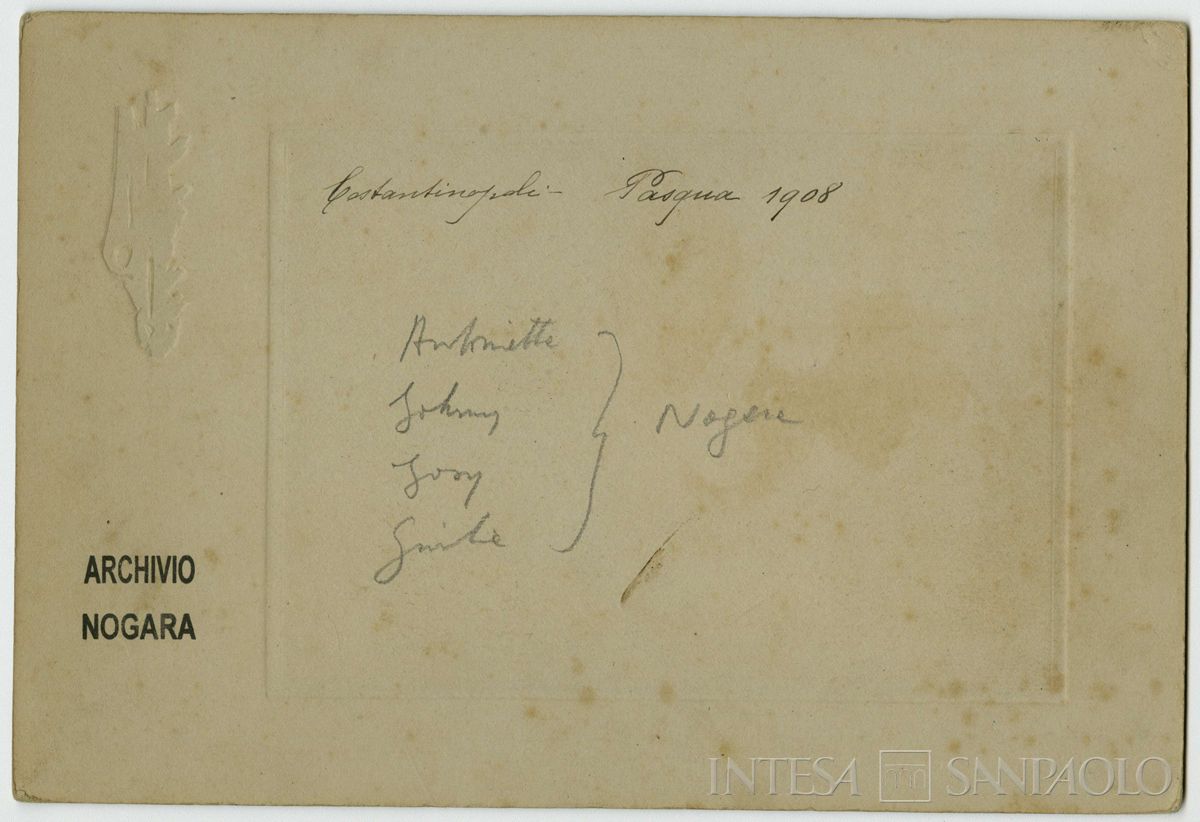 Costantinopoli - Pasqua 1908
Antoinette
Johnny
Josy
Nogara
ARCHIVIO
NOGARA
INTESA SANPAOLO